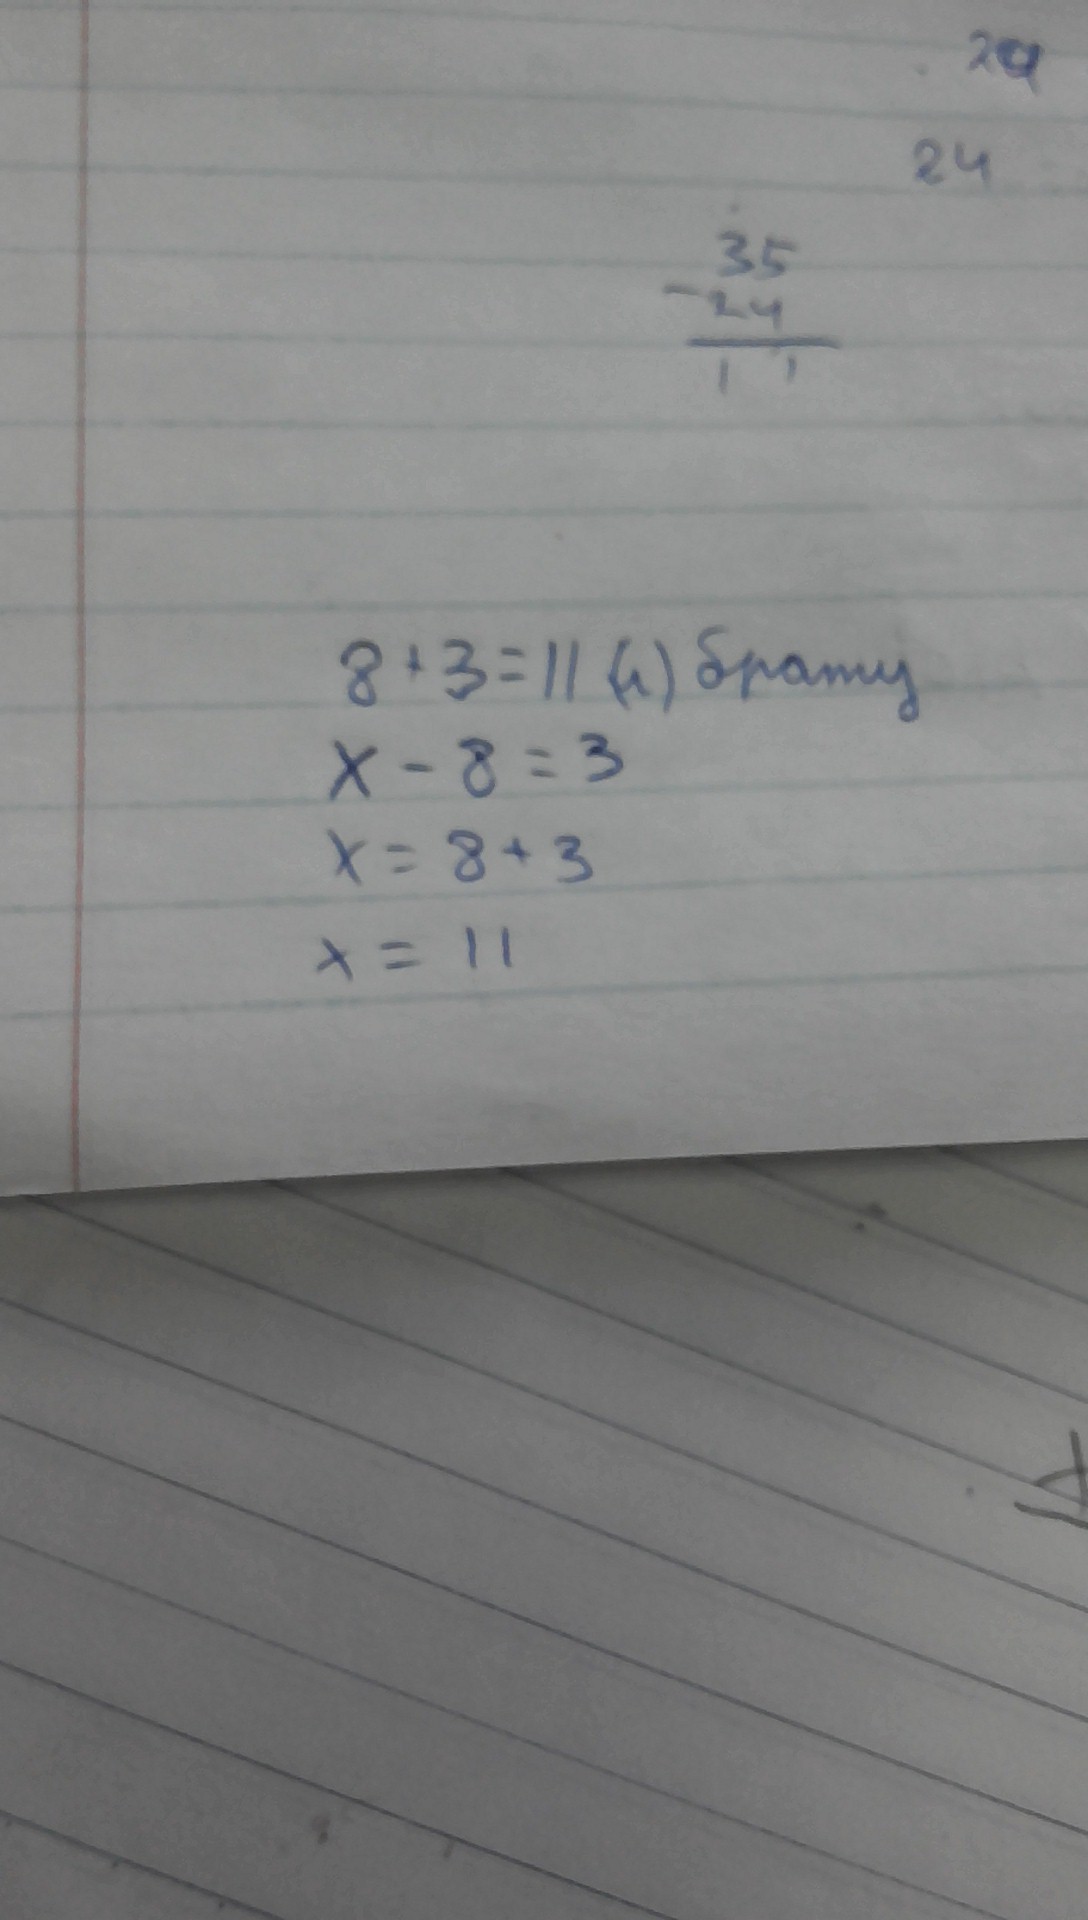 24
35
- 24
11
8 + 3 = 11 (л) брату
x - 8 = 3
x = 8 + 3
x = 11